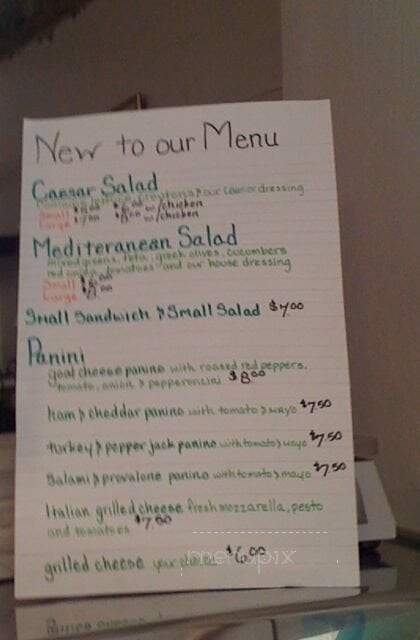 New to our Menu
Caesar Salad
romaine, lemon, croutons & our Caesar dressing
Small w/chicken
Large $7.00 w/chicken
Mediteranean Salad
mixed greens, feta, greek olives, cucumbers
red onion, tomatoes and our house dressing
Small
Large
Small Sandwich & Small Salad $7.00
Panini
goat cheese panino with roasted red peppers,
tomato, onion & pepperoncini $8.00
ham & cheddar panino with tomato & mayo $7.50
turkey & pepper jack panino with tomato & mayo $7.50
Salami & provalone panino with tomato & mayo $7.50
Italian grilled cheese fresh mozzarella, pesto
and tomatoes $7.00
grilled cheese your choice $6.00
menupix